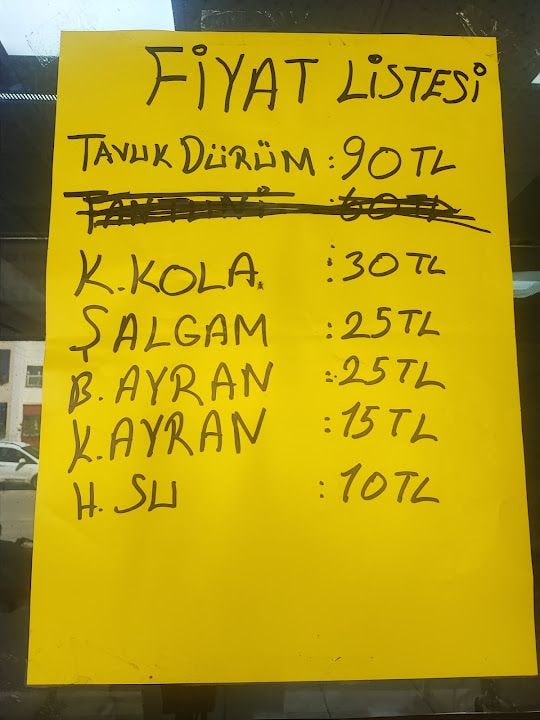 FİYAT LİSTESİ
TAVUK DÜRÜM : 90 TL
K.KOLA : 30 TL
ŞALGAM : 25 TL
B. AYRAN : 25 TL
K.AYRAN : 15 TL
H. SU : 10 TL